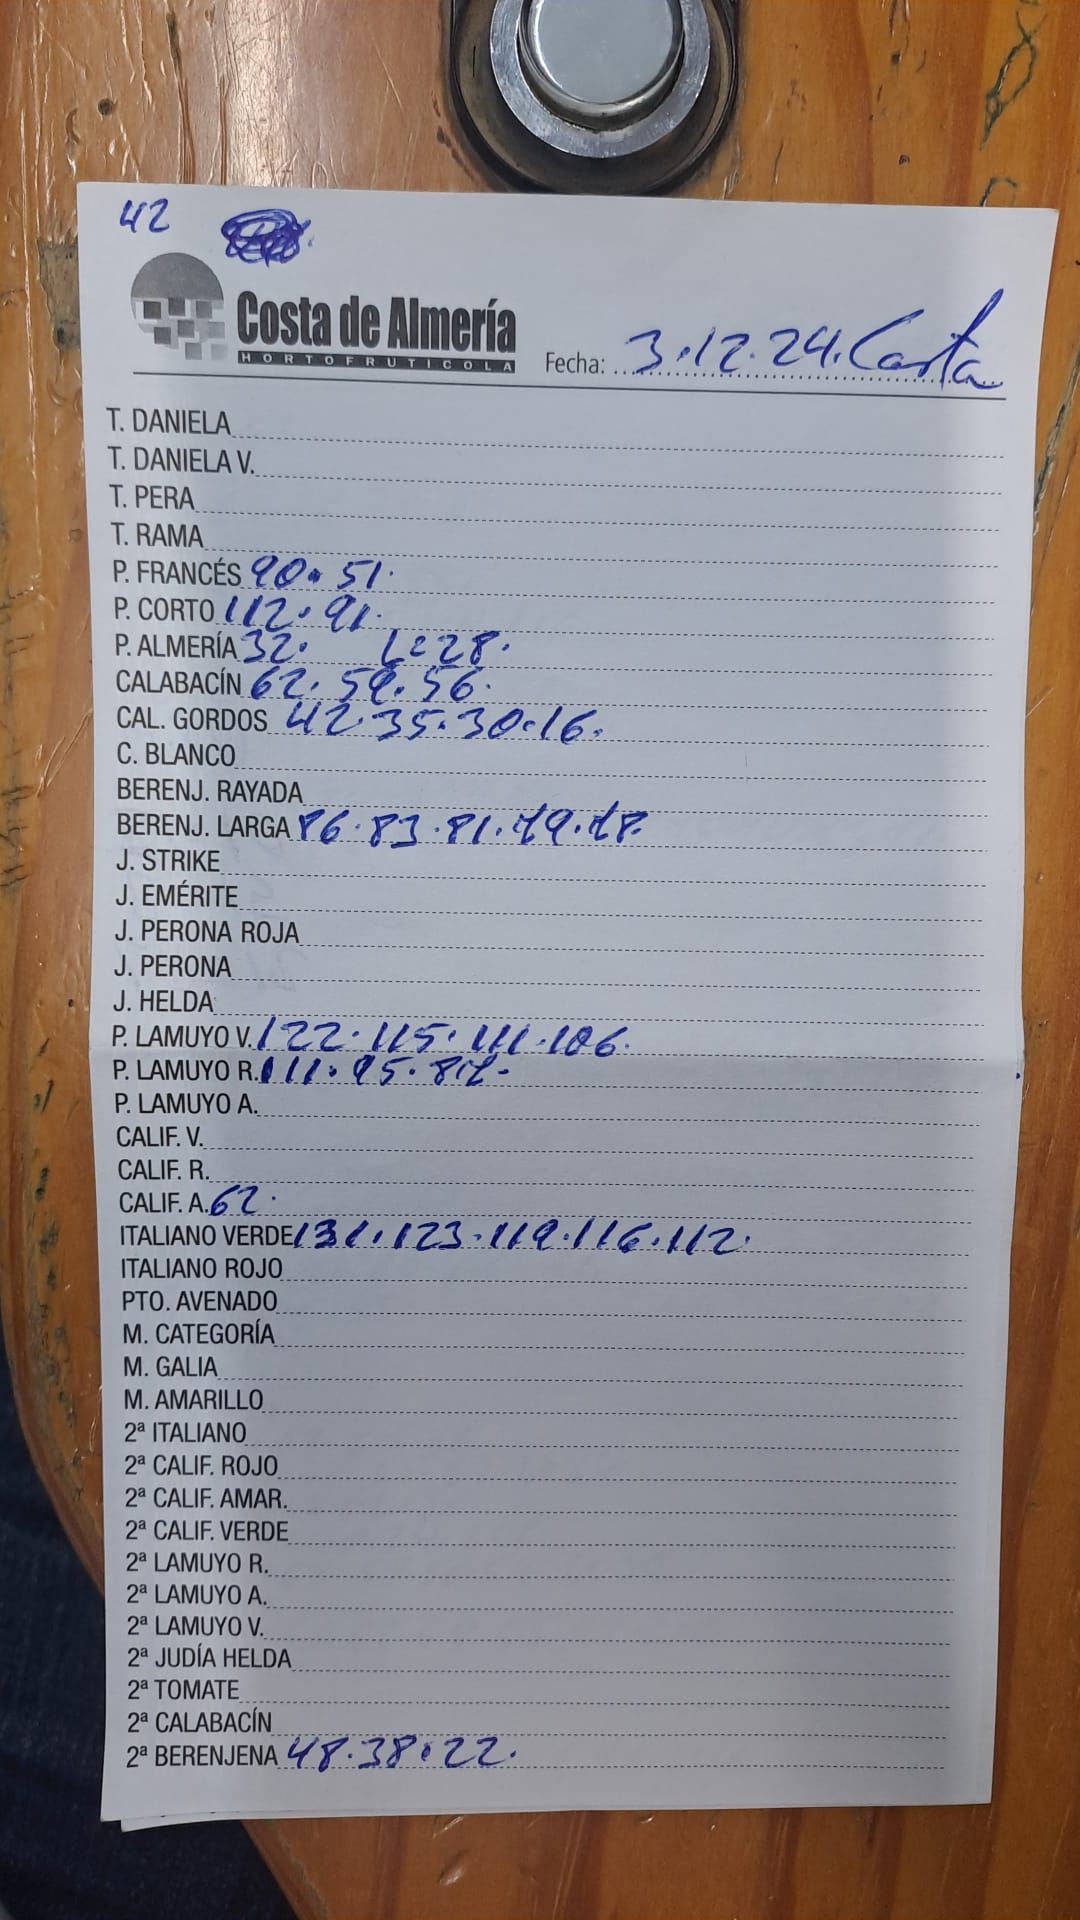 42
Costa de Almería
HORTOFRUTICOLA
Fecha: 3.12.24. Costa
T. DANIELA
T. DANIELA V.
T. PERA
T. RAMA
P. FRANCÉS 90. 51.
P. CORTO 112. 91.
P. ALMERÍA 32. L=28.
CALABACÍN 62. 59. 56.
CAL. GORDOS 42. 35. 30. 16.
C. BLANCO
BERENJ. RAYADA
BERENJ. LARGA 86. 83. 81. 79. 78.
J. STRIKE
J. EMÉRITE
J. PERONA ROJA
J. PERONA
J. HELDA
P. LAMUYO V. 122. 115. 111. 106.
P. LAMUYO R. 111. 95. 87.
P. LAMUYO A.
CALIF. V.
CALIF. R.
CALIF. A. 62.
ITALIANO VERDE 131. 123. 119. 116. 112.
ITALIANO ROJO
PTO. AVENADO
M. CATEGORÍA
M. GALIA
M. AMARILLO
2ª ITALIANO
2ª CALIF. ROJO
2ª CALIF. AMAR.
2ª CALIF. VERDE
2ª LAMUYO R.
2ª LAMUYO A.
2ª LAMUYO V.
2ª JUDÍA HELDA
2ª TOMATE
2ª CALABACÍN
2ª BERENJENA 48. 38. 22.